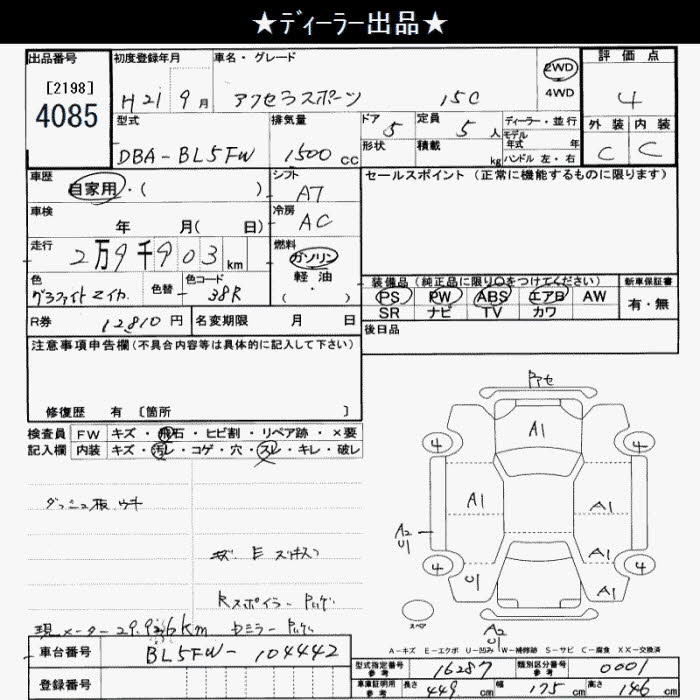 ★ディーラー出品★
出品番号
[2198]
4085
初度登録年月
H21 9月
車名・グレード
アクセラスポーツ 15C
2WD
4WD
評価点
4
外装 内装
C C
型式
DBA-BL5FW
排気量
1500 CC
ドア
5
定員
5人
ディーラー・並行
モデル年式 年
ハンドル 左・右
形状
積載
kg
車歴
自家用・( )
シフト
A7
セールスポイント(正常に機能するものに限ります)
車検
年 月( 日)
冷房
AC
走行
2万9千903km
燃料
ガソリン
軽・油
( )
色
グラファイトマイカ
色替
-
色コード
38R
装備品(純正品に限り○をつけてください)
新車保証書
PS PW ABS エアB AW
有・無
SR ナビ TV カワ
R券 12810円
名変期限 月 日
後日品
注意事項申告欄(不具合内容等は具体的に記入して下さい)
修復歴 有 〔箇所 〕
検査員
記入欄
FW キズ・飛石・ヒビ割・リペア跡・×要
内装 キズ・汚レ・コゲ・穴・スレ・キレ・破レ
ダッシュ板 ウキ
Rスポイラー
現メーター 29.936km
車台番号 BL5FW-104442
登録番号
A1
4 4
A1 A1
A2
U1
A1
4 4
U1 A1
スペア
A2
U1
A-キズ E-エクボ U-凹み W-補修跡 S-サビ C-腐食 XX-交換済
型式指定番号
参考
16287
類別区分番号
参考
0001
車庫証明用
参考
長さ 449 cm 幅 175 cm 高さ 146 cm